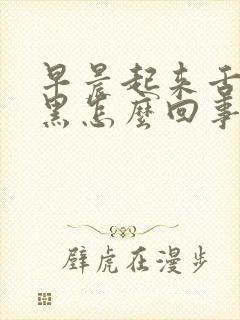 早晨起来舌
黑怎麽回事
壁虎在漫步